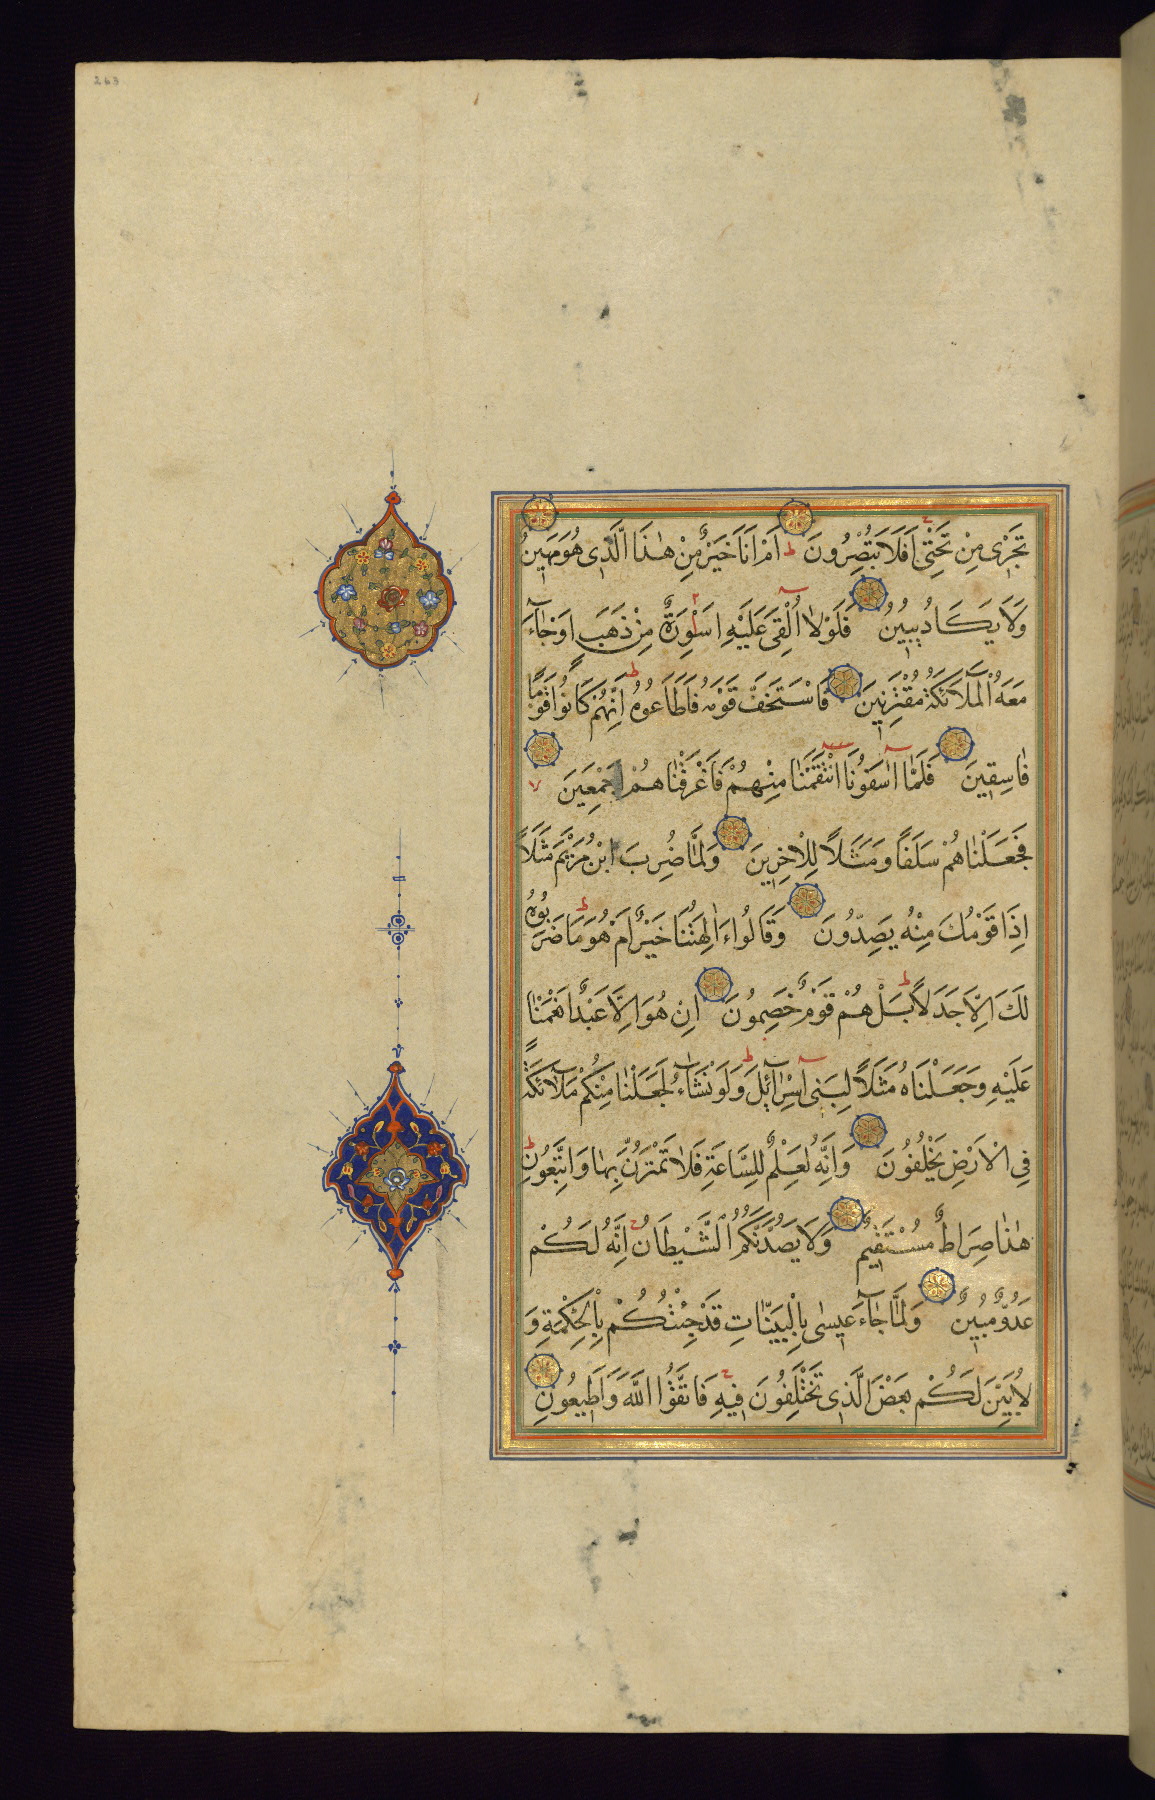 تَجْرِى مِنْ تَحْتِى اَفَلَا تُبْصِرُونَ ط اَمْ اَنَا خَيْرٌ مِنْ هٰذَا الَّذِى هُوَ مَهِينٌ
وَلَا يَكَادُ يُبِينُ فَلَوْلَا اُلْقِىَ عَلَيْهِ اَسْوِرَةٌ مِنْ ذَهَبٍ اَوْ جَاءَ
مَعَهُ الْمَلَائِكَةُ مُقْتَرِنِينَ فَاسْتَخَفَّ قَوْمَهُ فَاَطَاعُوهُ ط اِنَّهُمْ كَانُوا قَوْمًا
فَاسِقِينَ فَلَمَّا اٰسَفُونَا انْتَقَمْنَا مِنْهُمْ فَاَغْرَقْنَاهُمْ اَجْمَعِينَ
فَجَعَلْنَاهُمْ سَلَفًا وَمَثَلًا لِلْاٰخِرِينَ وَلَمَّا ضُرِبَ ابْنُ مَرْيَمَ مَثَلًا
اِذَا قَوْمُكَ مِنْهُ يَصِدُّونَ وَقَالُوا ءَاٰلِهَتُنَا خَيْرٌ اَمْ هُوَ ط مَا ضَرَبُوهُ
لَكَ اِلَّا جَدَلًا ط بَلْ هُمْ قَوْمٌ خَصِمُونَ اِنْ هُوَ اِلَّا عَبْدٌ اَنْعَمْنَا
عَلَيْهِ وَجَعَلْنَاهُ مَثَلًا لِبَنِى اِسْرَائِلَ ط وَلَوْ نَشَاءُ لَجَعَلْنَا مِنْكُمْ مَلَائِكَةً
فِى الْاَرْضِ يَخْلُفُونَ وَاِنَّهُ لَعِلْمٌ لِلسَّاعَةِ فَلَا تَمْتَرُنَّ بِهَا وَاتَّبِعُونِ ط
هٰذَا صِرَاطٌ مُسْتَقِيمٌ وَلَا يَصُدَّنَّكُمُ الشَّيْطَانُ ج اِنَّهُ لَكُمْ
عَدُوٌّ مُبِينٌ وَلَمَّا جَاءَ عِيسٰى بِالْبَيِّنَاتِ قَالَ قَدْ جِئْتُكُمْ بِالْحِكْمَةِ وَ
لِاُبَيِّنَ لَكُمْ بَعْضَ الَّذِى تَخْتَلِفُونَ فِيهِ ج فَاتَّقُوا اللّٰهَ وَاَطِيعُونِ